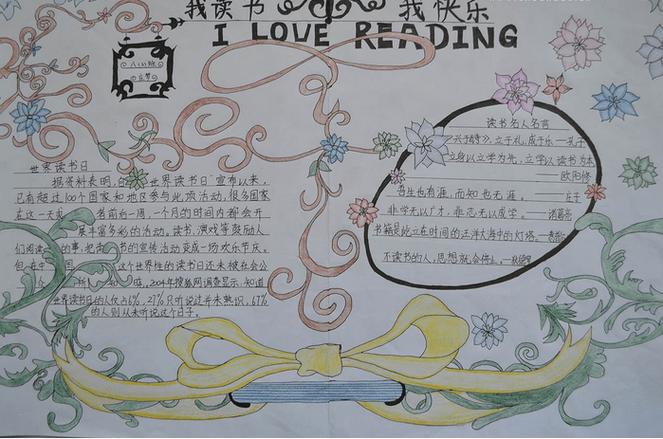 我读书 我快乐
I LOVE READING
八(1)班
世界读书日
据资料表明,自"世界读书日"宣布以来,
已有超过100个国家和地区参与此项活动,很多国家
在这一天或 者前后一周,一个月的时间内都会开
展丰富多彩的活动。读书、演戏等鼓励人
们阅读 的事,把读 书的宣传活动变成一场欢乐节庆。
这个世界性的读书日还未被社会公
2004年搜狐网调查显示,知道
世界读书日的人仅占6%,27%只听说过并未熟识,67%
的人则从未听说这个日子。
读书名人名言
兴于诗,立于礼,成于乐——孔子
立身以立学为先,立学以读书为本
——欧阳修
吾生也有涯,而知也无涯。——庄子
非学无以广才,非志无以成学。——诸葛亮
书籍是屹立在时间的汪洋大海中的灯塔。
不读书的人,思想就会停止。